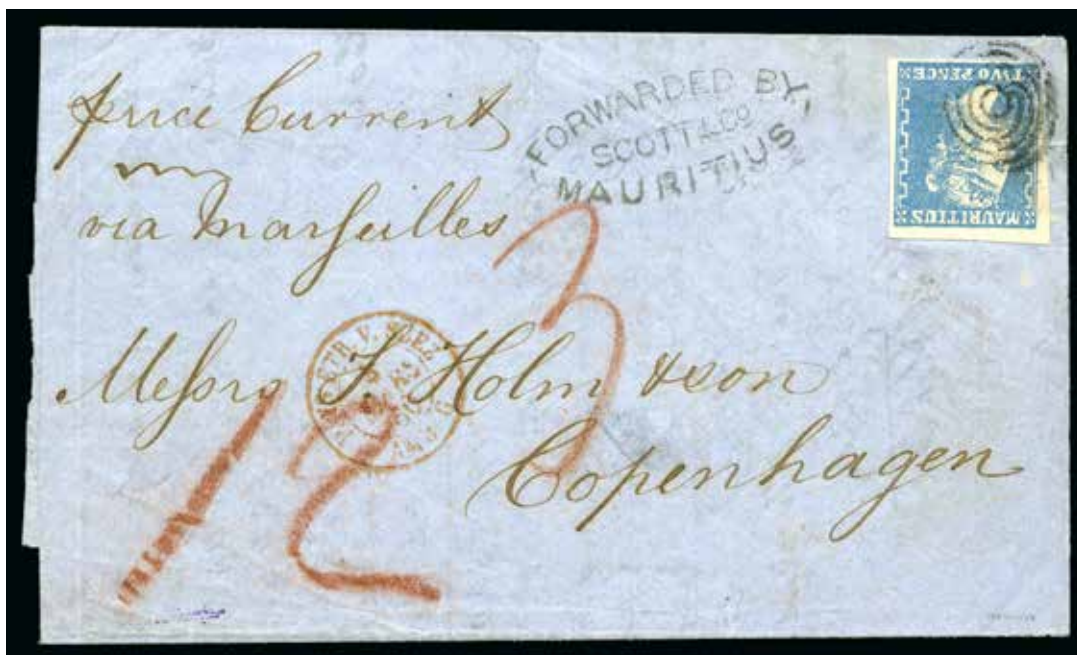 price Current
via Marseilles
FORWARDED BY
SCOTT & CO
MAURITIUS
TWO PENCE
MAURITIUS
Messrs F. Holm & son
Copenhagen
3
12